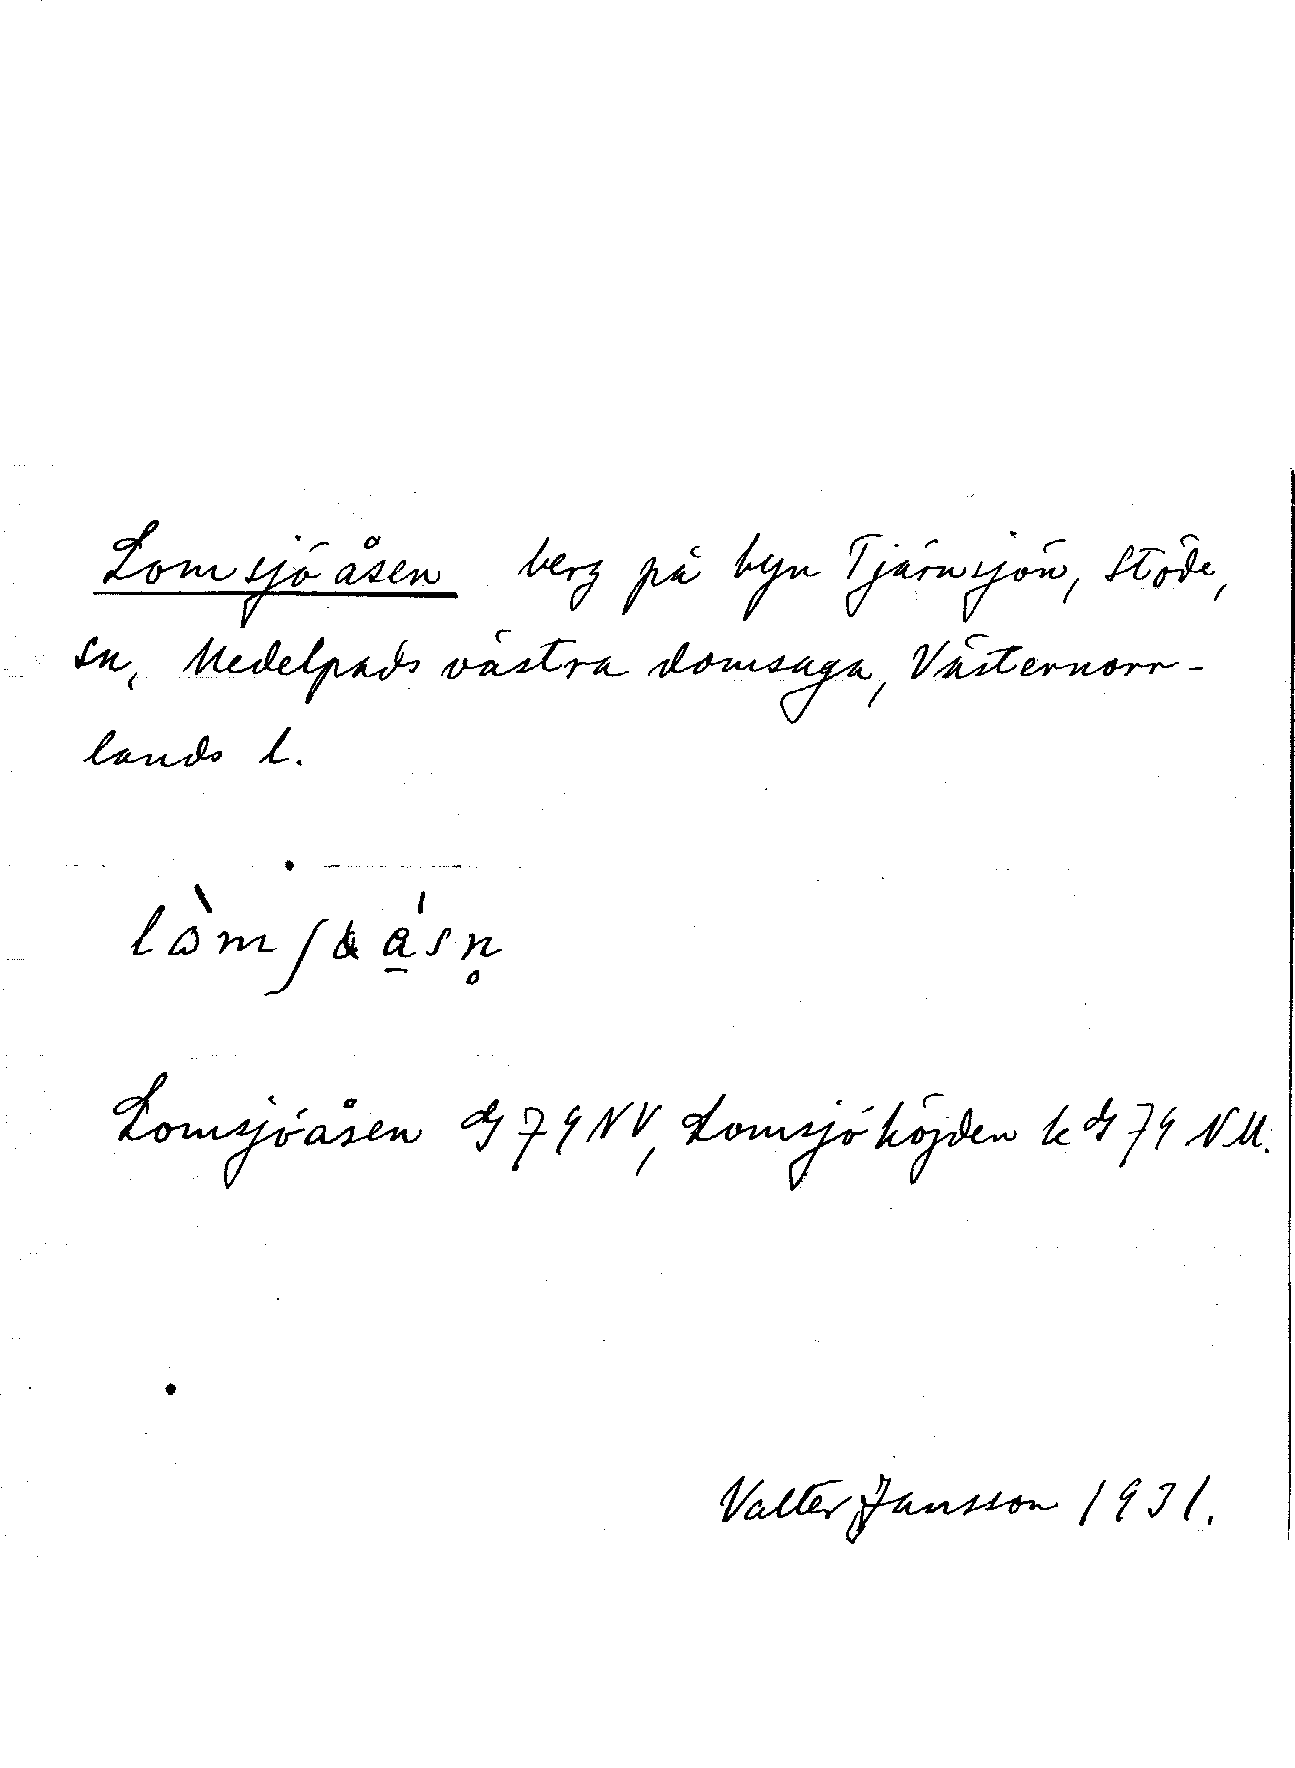 Lomsjöåsen berg på byn Tjärnsjön, Stöde,
sn, Medelpads västra domsaga, Västernorr-
lands l.
Lomsjöåsen dg 79 NV, Lomsjöhöjden k dg 79 NV.
Valter Jansson 1931.